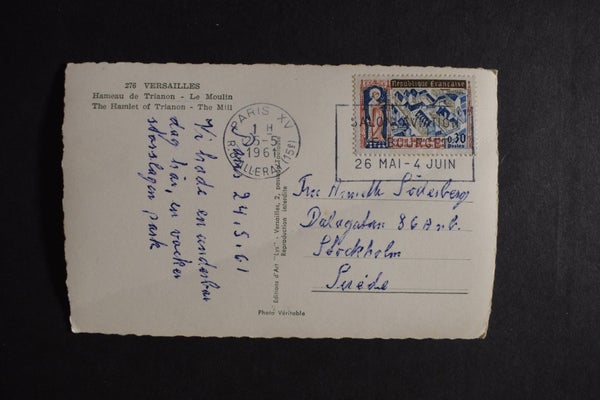 276 VERSAILLES
Hameau de Trianon - Le Moulin
The Hamlet of Trianon - The Mill
24.5.61
Vi hade en underbar
dag här, en vacker
storslagen park
PARIS XV
1 H
25-5
1961
R. D'ALLERAY (15E)
République Française
0,30
Postes
SALON AVIATION
LE BOURGET
26 MAI - 4 JUIN
Söderberg
Dalagatan 86 A n.b.
Stockholm
Suède
Editions d'Art "Lys" - Versailles, 2,
Reproduction interdite
Photo Véritable